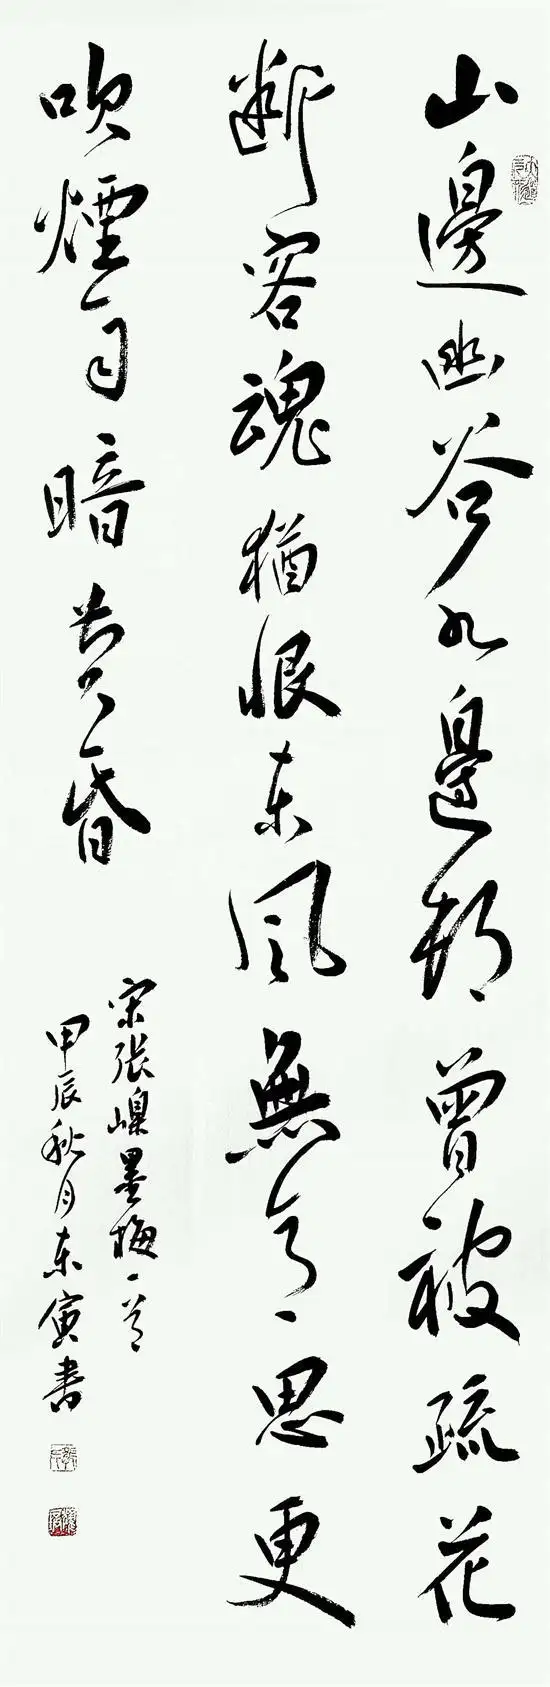 山邊幽谷水邊村曾被疏花
斷客魂猶恨東風無意思更
吹煙雨暗黄昏
宋張嵲墨梅一首
甲辰秋月東寅書